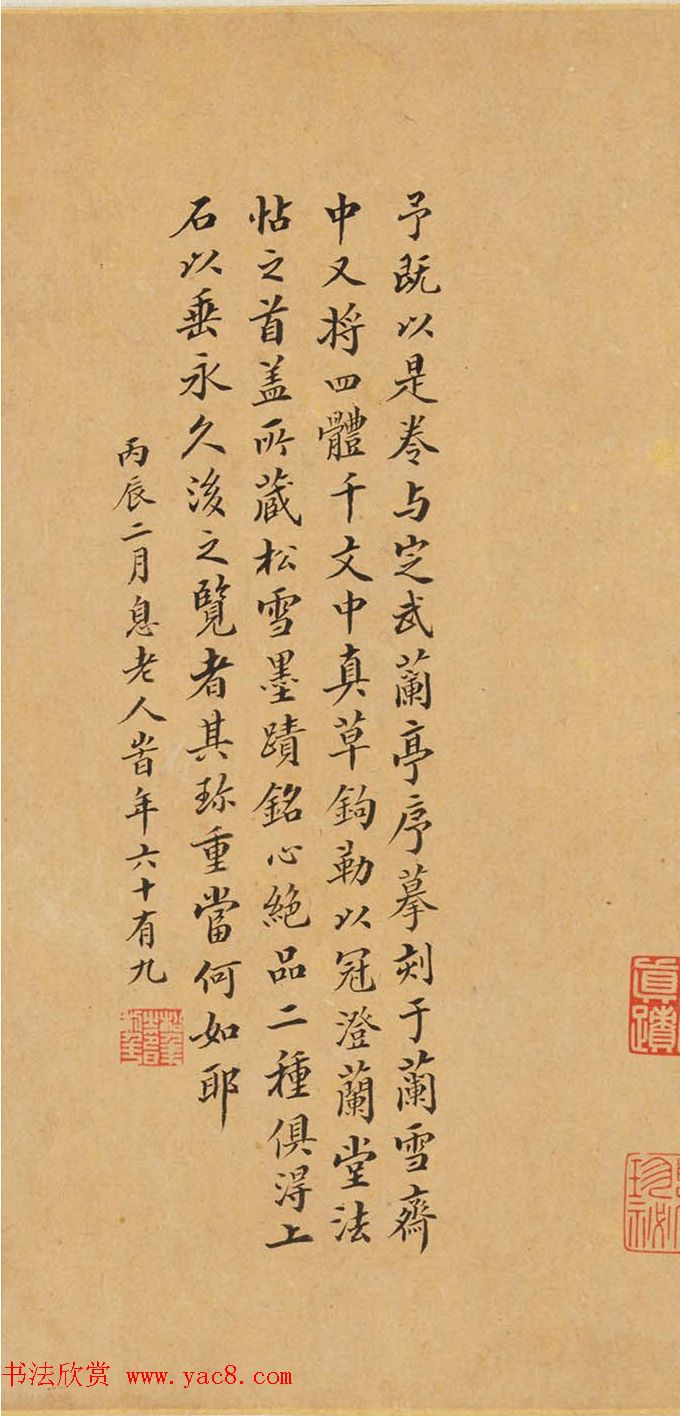 予既以是卷与定武蘭亭序摹刻于蘭雪齋
中又将四體千文中真草鉤勒以冠澄蘭堂法
帖之首盖所蔵松雪墨蹟銘心絶品二種俱淂上
石以垂永久後之覽者其珎重當何如耶
丙辰二月息老人峕年六十有九
真蹟
珍祕
书法欣赏 www.yac8.com